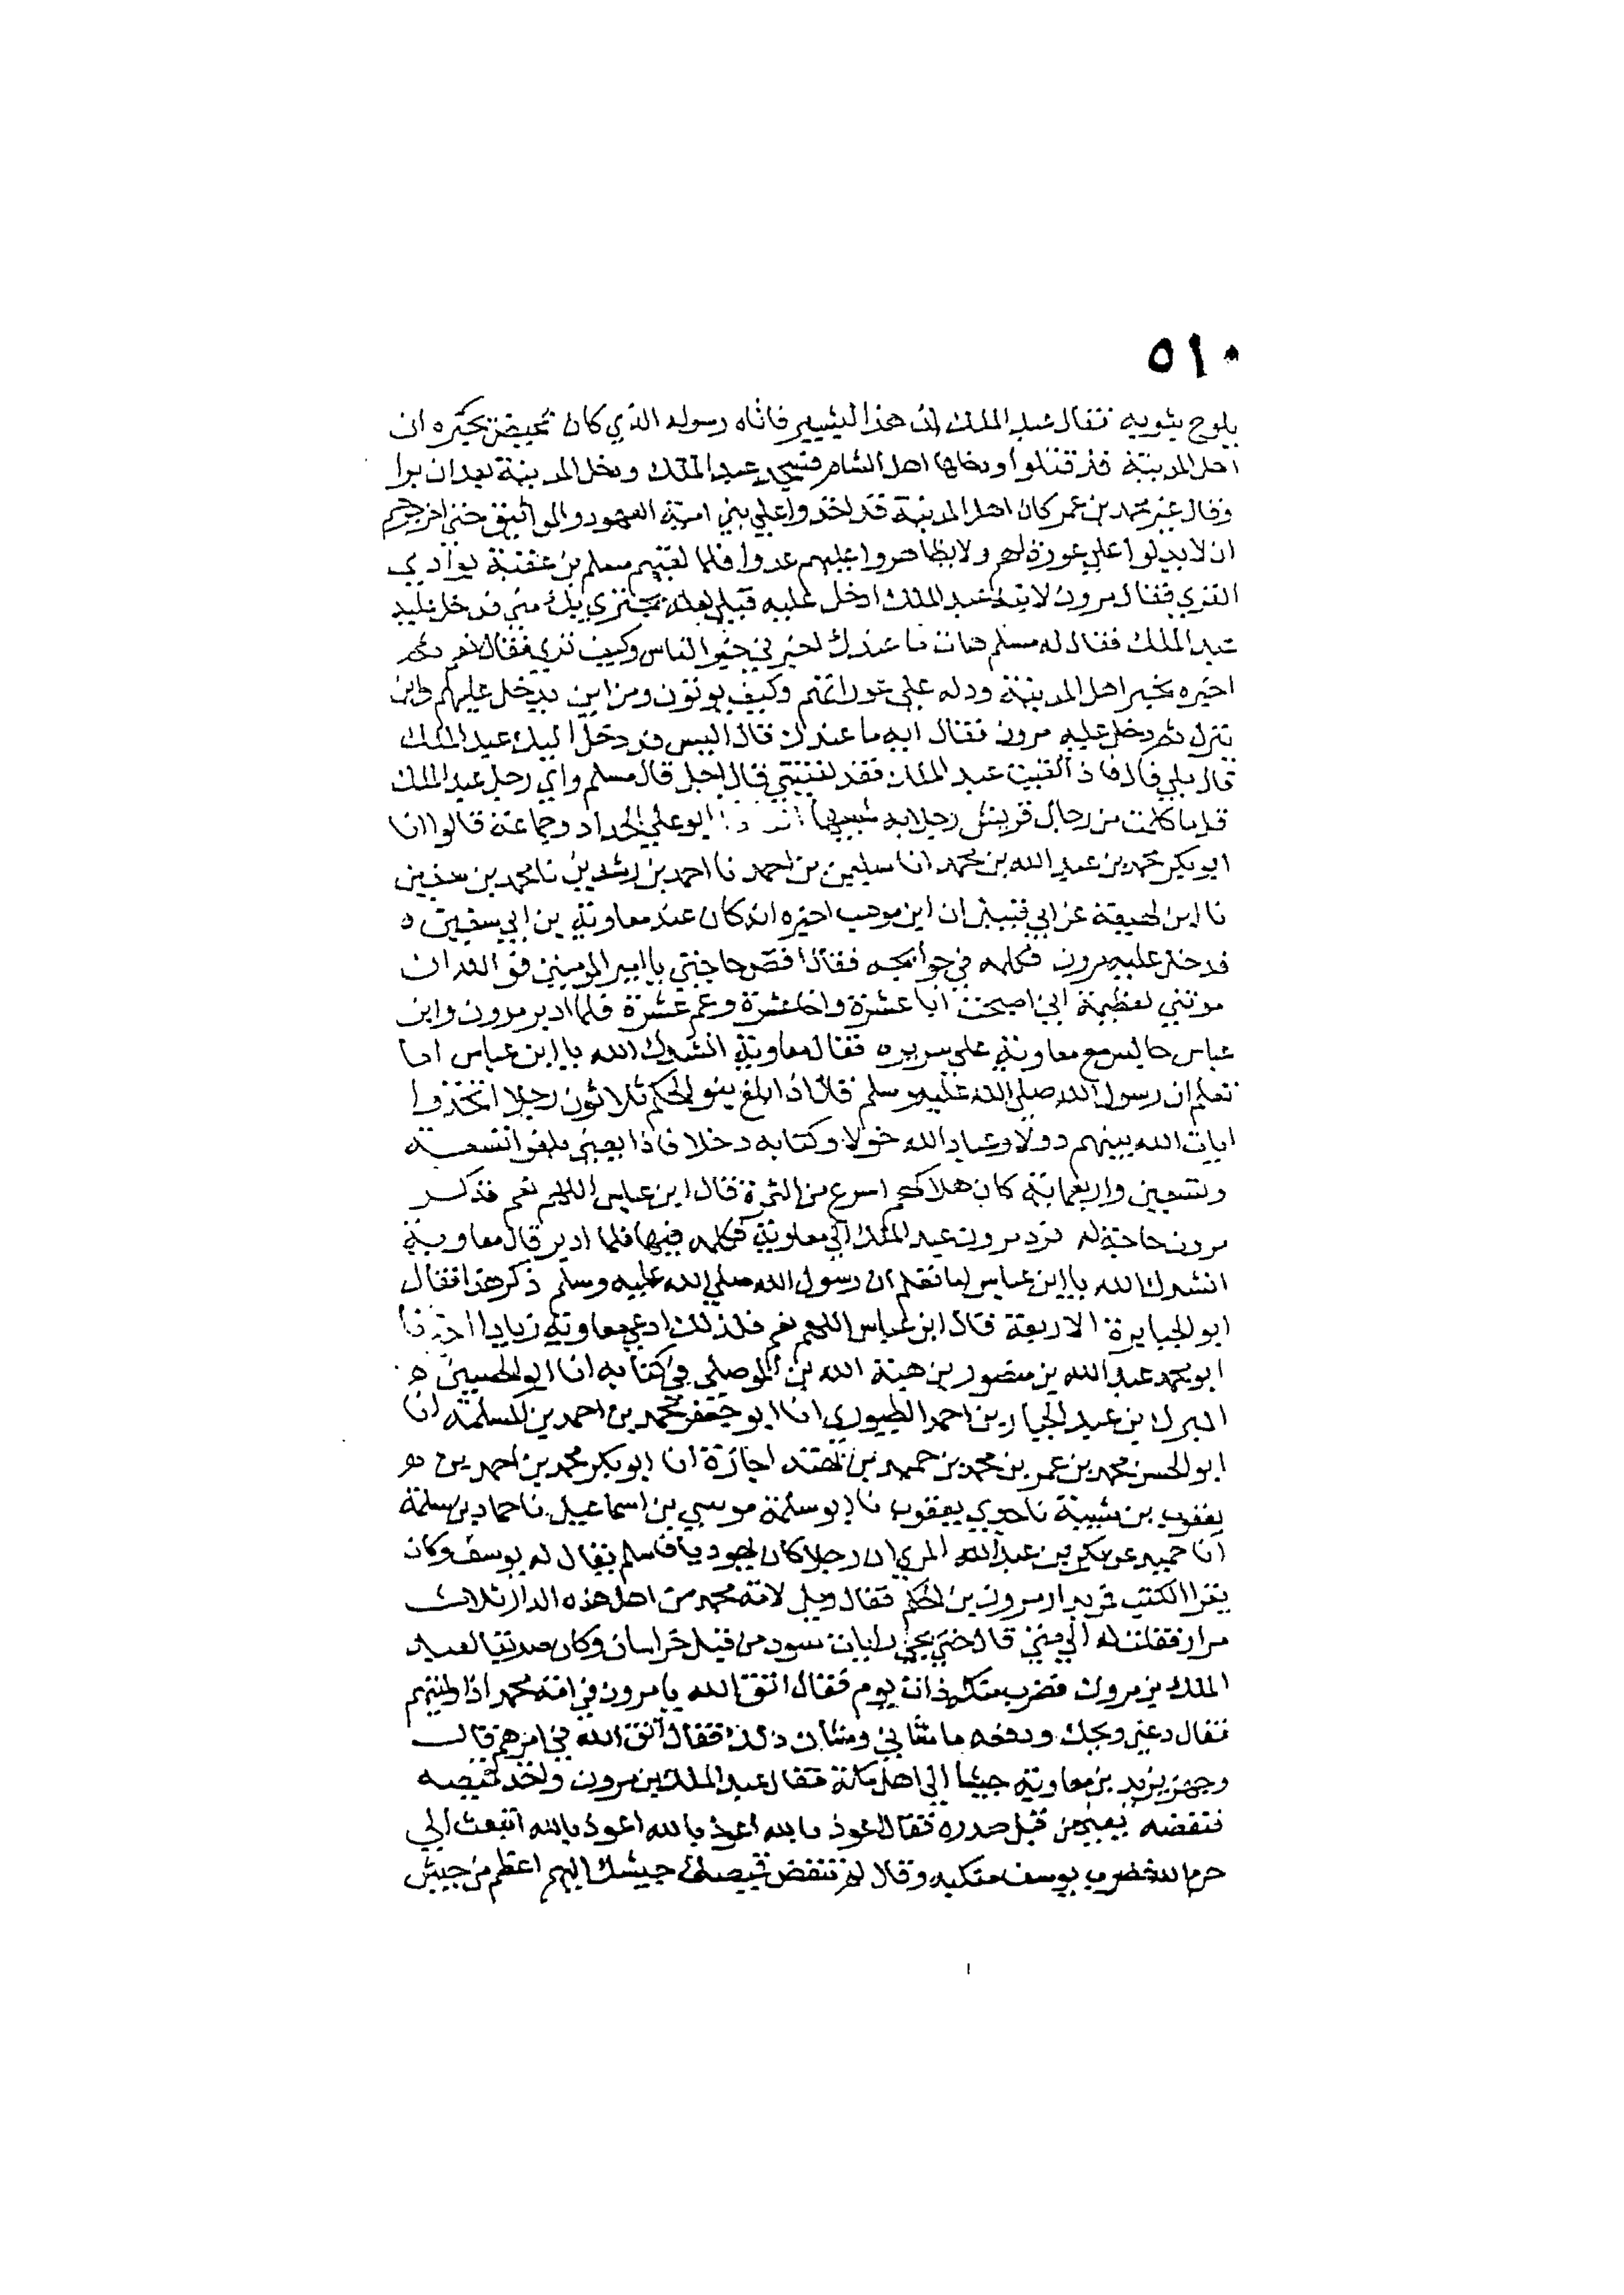 ٥١٠
يلوح بثوبه فقال عبد الملك ان هذا لبشير فاتاه رسوله الذي كان بمخيض يخبره ان
اهل المدينة قد قتلوا ودخلها اهل الشام فسجد عبد الملك ودخل المدينة بعد ان برا
وقال غير محمد بن عمر كان اهل المدينة قد اخذوا علي بني امية العهود والمواثيق حتي اخرجوهم
ان لا يدلوا علي عورة لهم ولا يظاهروا عليهم عدوا فلما لقيهم مسلم بن عقبة بوادي
القري فقال مرون لابنه عبد الملك ادخل عليه قبلي لعله يجتزي بك مني فدخل عليه
عبد الملك فقال له مسلم هات ما عندك اخبرني خبر الناس وكيف تري فقال نعم ثم
اخبره بخبر اهل المدينة ودله علي عوراتهم وكيف يوتون ومن اين يدخل عليهم واين
ينزل ثم دخل عليه مرون فقال ايه ما عندك قال اليس قد دخل اليك عبد الملك
قال بلي قال فاذا لقيت عبد الملك فقد لقيتني قال اجل قال مسلم واي رجل عبد الملك
قل ما كلمت من رجال قريش رجلا به شبيها ابو علي الحداد وجماعة قالوا انا
ابو بكر محمد بن عبد الله بن محمد انا سليمن بن احمد نا احمد بن رشدين نا محمد بن سفين
نا ابن لهيعة عن ابي قبيل ان ابن موهب اخبره انه كان عند معاوية بن ابي سفين ه
فدخل عليه مرون فكلمه في حوايجه فقال اقض حاجتي يا امير المومنين فو الله ان
مونتي لعظيمة اني اصبحت ابا عشرة واخا عشرة وعم عشرة فلما ادبر مرون وابن
عباس جالس مع معاوية علي سريره فقال معاوية انشدك الله يا ابن عباس اما
تعلم ان رسول الله صلي الله عليه وسلم قال اذا بلغ بنو الحكم ثلاثون رجلا اتخذوا
ايات الله بينهم دولا وعباد الله خولا وكتابه دخلا فاذا يعني بلغوا تسعة
وتسعين واربعماية كان هلاكهم اسرع من الثمرة قال ابن عباس اللهم نعم فذكر
مرون حاجة له فرد مرون عبد الملك الي معاوية فكلمه فيها فلما ادبر قال معاوية
انشدك الله يا ابن عباس اما تعلم ان رسول الله صلي الله عليه وسلم ذكر هذا فقال
ابو الجبابرة الاربعة قال ابن عباس اللهم نعم فلذلك ادعي معاوية زيادا اخبرنا
ابو محمد عبد الله بن منصور بن هبة الله بن الموصلي في كتابه انا ابو الحسين ه
المبرك بن عبد الجبار بن احمد الطيوري انا ابو جعفر محمد بن احمد بن المسلمة انا
ابو الحسن محمد بن عمر بن محمد بن حميد بن بهتة اجازة انا ابو بكر محمد بن احمد بن ه
يعقوب بن شيبة نا جدي يعقوب نا ابو سلمة موسي بن اسماعيل نا حماد بن سلمة
انا حميد عن بكر بن عبد الله المزي ان رجلا كان يهوديا فاسلم يقال له يوسف وكان
يقرا الكتب فمر بدار مرون بن الحكم فقال ويل لامة محمد من اهل هذه الدار ثلاث
مرار فقلت له الي متي قال حتي تجي رايات سود من قبل خراسان وكان صديقا لعبد
الملك بن مرون فضرب منكبه ذات يوم فقال اتق الله يا مرون في امة محمد اذا وليتهم
فقال دعني ويحك ودفعه ما شاني وشان ذلك فقال اتق الله في امرهم قال
وجهز يزيد بن معاوية جيشا الي اهل مكة فقال عبد الملك بن مرون واخذ قميصه
فنفضه يعني من قبل صدره فقال اعوذ بالله اعوذ بالله اعوذ بالله اتبعث الي
حرم الله فضرب يوسف منكبه وقال لم تنفض قميصك جيشك اليهم اعظم من جيش